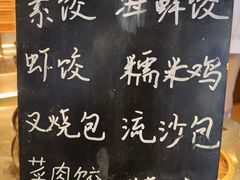 素饺 海鲜饺
虾饺 糯米鸡
叉烧包 流沙包
菜肉饺